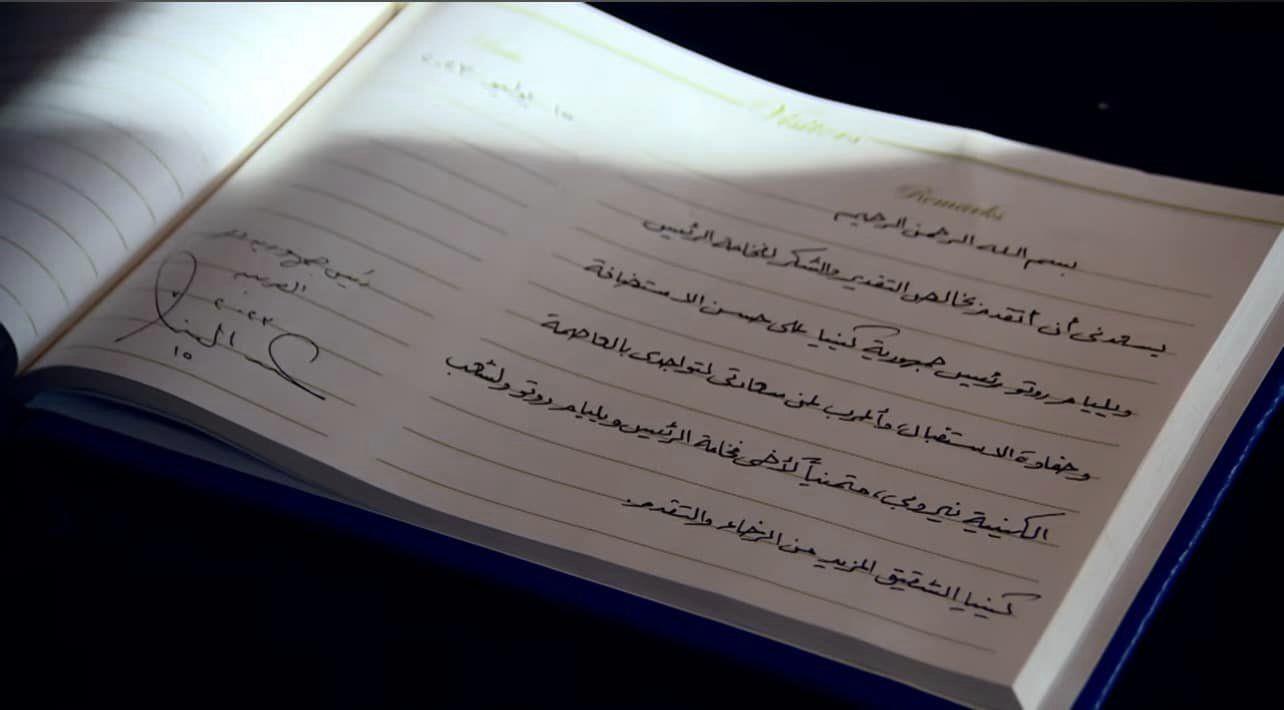 Remarks
١٥ يوليو ٢٠٢٣
بسم الله الرحمن الرحيم
يسعدني أن أتقدم بخالص التقدير والشكر لفخامة الرئيس
ويليام روتو رئيس جمهورية كينيا على حسن الاستضافة
وحفاوة الاستقبال، وأعرب عن سعادتي لتواجدي بالعاصمة
الكينية نيروبي، متمنياً لأخي فخامة الرئيس ويليام روتو ولشعب
كينيا الشقيق المزيد من الرخاء والتقدم.
رئيس جمهورية مصر
العربية
٢٠٢٣
١٥